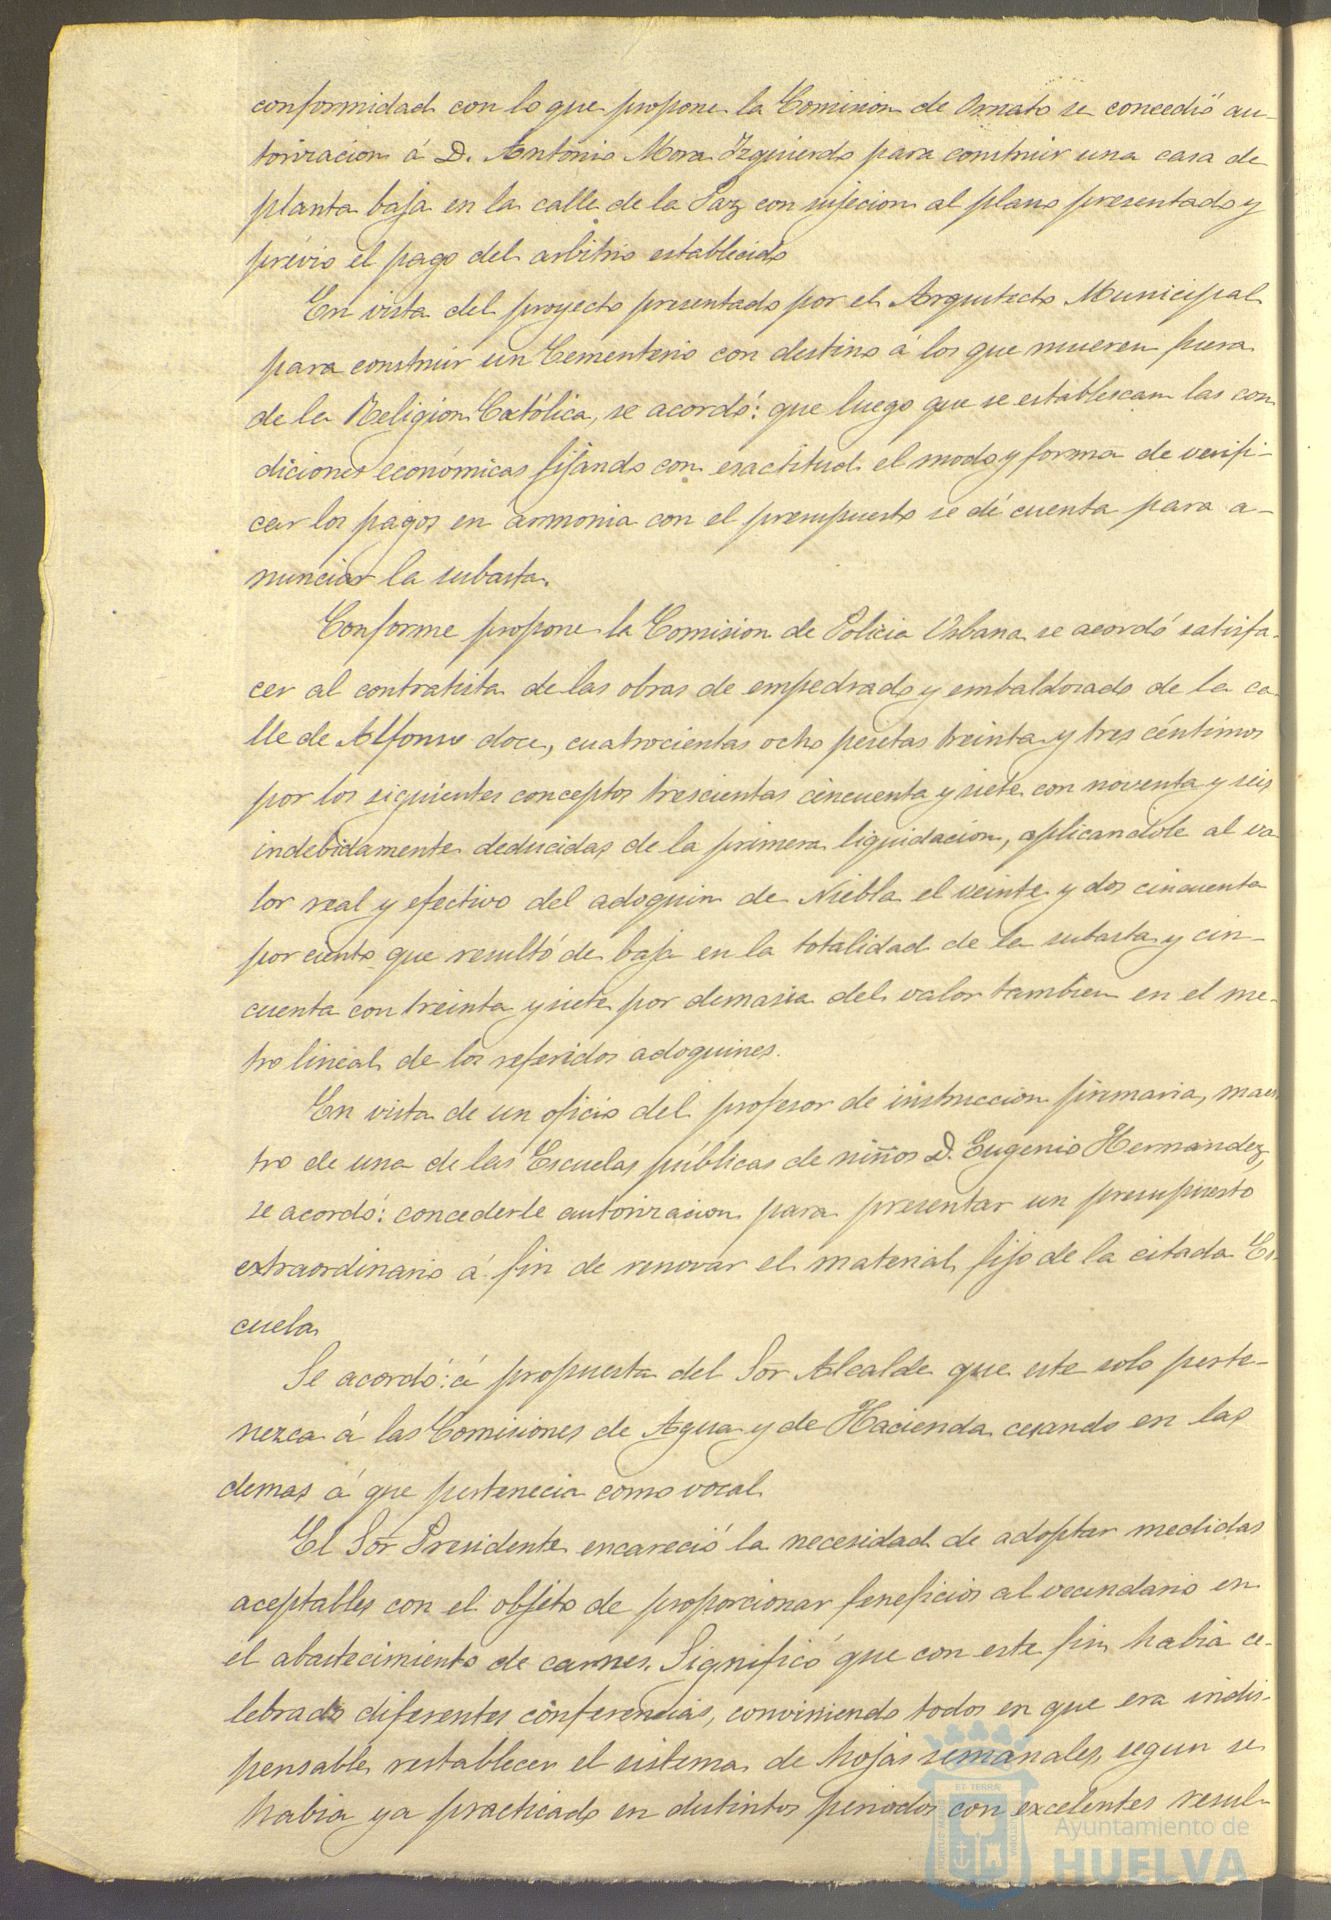 conformidad con lo que propone la Comision de Ornato se concedió au-
torizacion á D. Antonio Mora Izquierdo para construir una casa de
planta baja en la calle de la Paz con sujecion al plano presentado y
prévio el pago del arbitrio establecido
En vista del proyecto presentado por el Arquitecto Municipal
para construir un Cementerio con destino á los que mueren fuera
de la Religion Católica, se acordó: que luego que se establescan las con
diciones económicas fijando con exactitud el modo y forma de verifi-
car los pagos en armonia con el presupuesto se dé cuenta para a-
nunciar la subasta.
Conforme propone la Comision de Policia Urbana se acordó satisfa-
cer al contratista de las obras de empedrado y embaldosado de la ca
lle de Alfonso doce, cuatrocientas ocho pesetas treinta y tres céntimos
por los siguientes conceptos trescientas cincuenta y siete con noventa y seis
indebidamente deducidas de la primera liquidacion, aplicandole al va
lor real y efectivo del adoquin de Niebla el veinte y dos cincuenta
por ciento que resultó de baja en la totalidad de la subasta y cin-
cuenta con treinta y siete por demasia del valor tambien en el me-
tro lineal de los referidos adoquines.
En vista de un oficio del profesor de instruccion primaria, maes
tro de una de las Escuelas públicas de niños D. Eugenio Hernandez,
se acordó: concederle autorizacion para presentar un presupuesto
extraordinario á fin de renovar el material fijo de la citada Es-
cuela
Se acordó: á propuesta del Sor Alcalde que este solo perte-
nezca á las Comisiones de Agua y de Hacienda cesando en las
demas á que pertenecia como vocal
El Sor Presidente encareció la necesidad de adoptar medidas
aceptables con el objeto de proporcionar beneficios al vecindario en
el abastecimiento de carnes. Significó que con este fin habia ce-
lebrado diferentes conferencias, conviniendo todos en que era indis-
pensable restablecer el sistema de hojas semanales, segun se
habia ya practicado en distintos periodos con excelentes resul-
ET TERRÆ
Ayuntamiento de
HUELVA